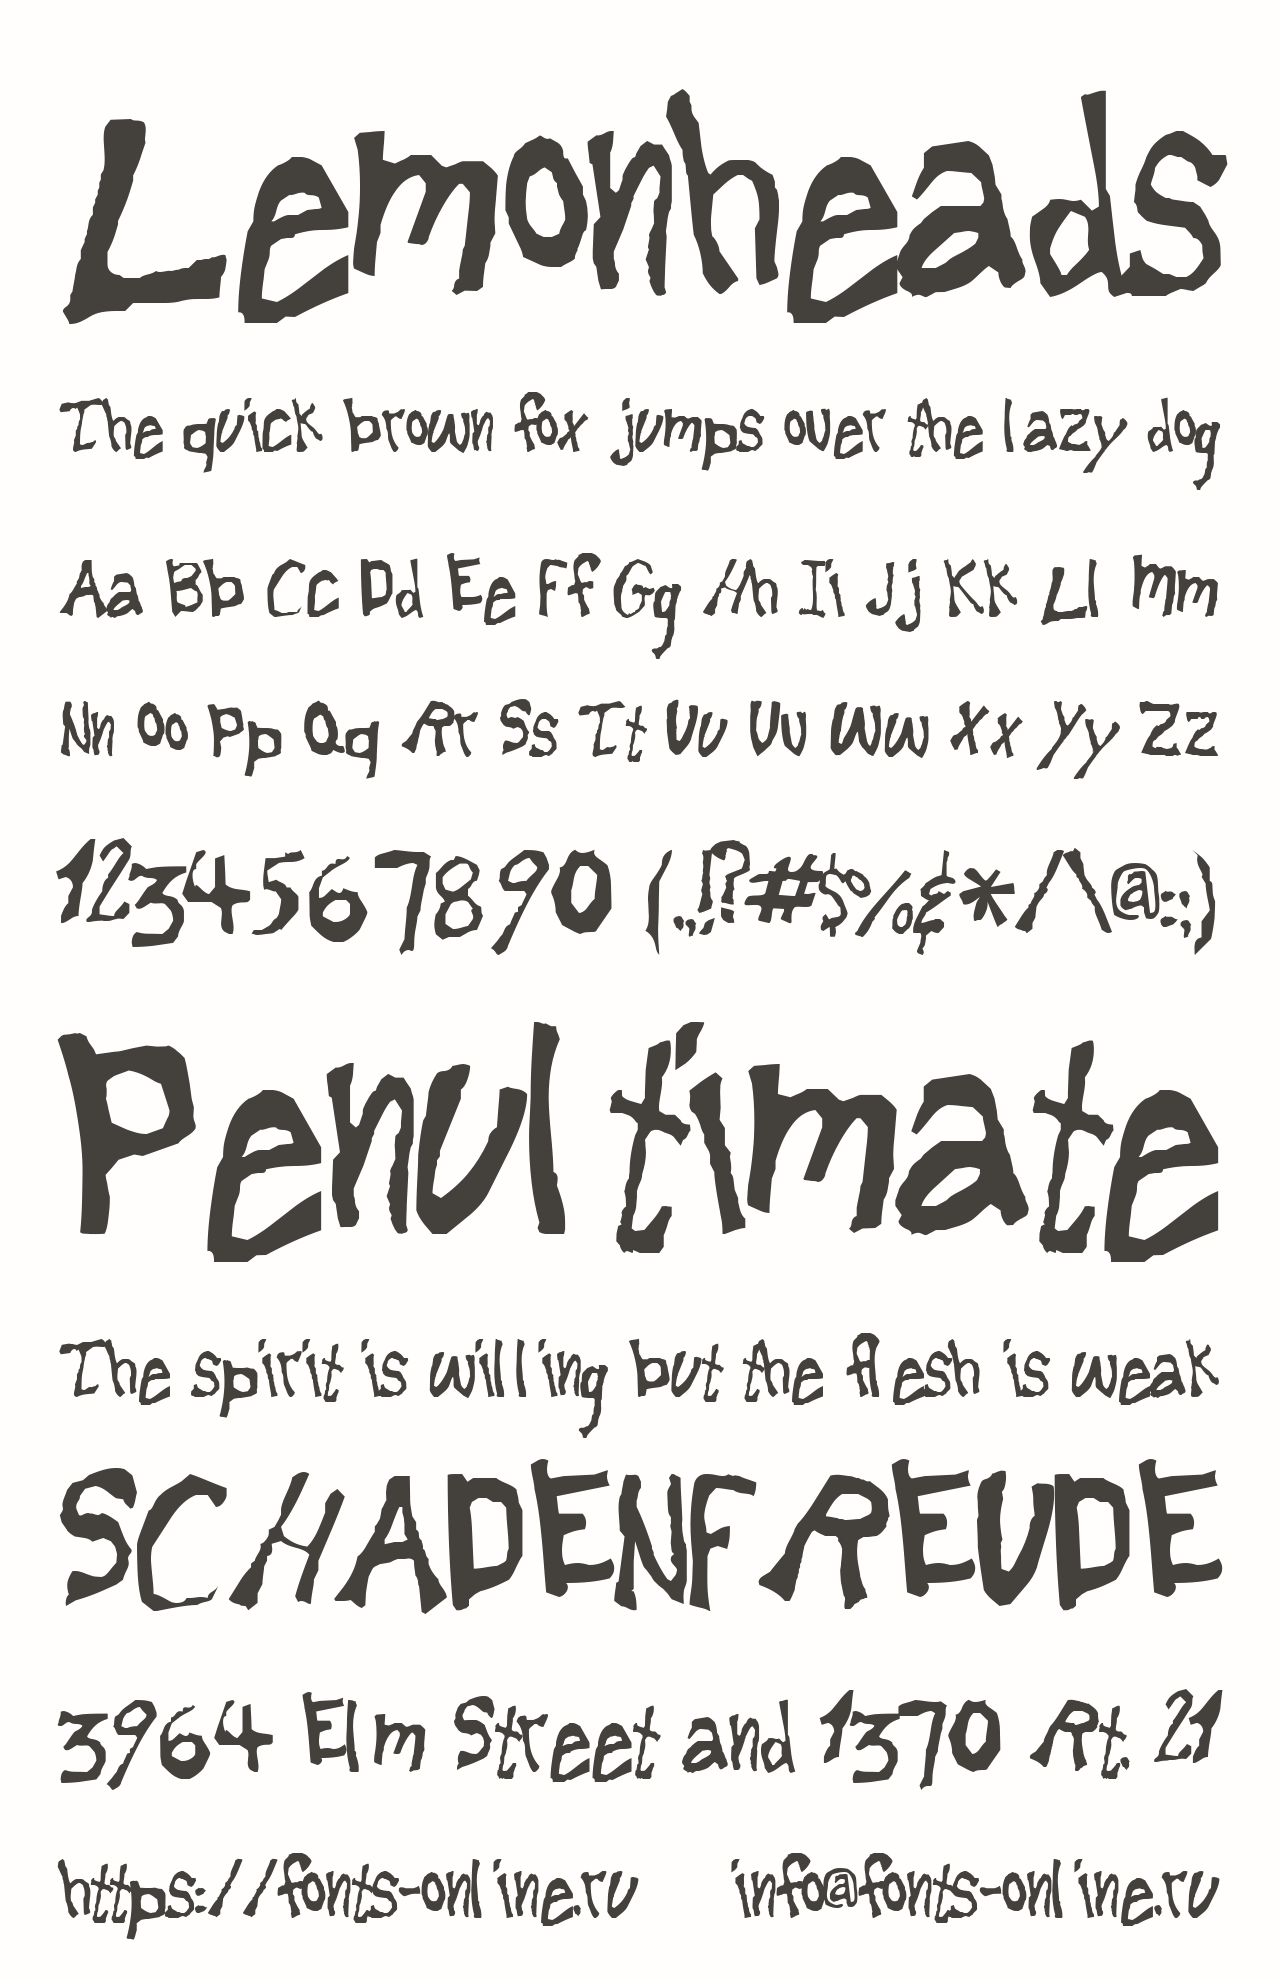 Lemonheads
The quick brown fox jumps over the lazy dog
Aa Bb Cc Dd Ee Ff Gg Hh Ii Jj Kk Ll Mm
Nn Oo Pp Qq Rr Ss Tt Uu Vv Ww Xx Yy Zz
1234567890 (.,!?#$%&*/\@:;)
Penultimate
The spirit is willing but the flesh is weak
SCHADENFREUDE
3964 Elm Street and 1370 Rt. 21
https://fonts-online.ru info@fonts-online.ru